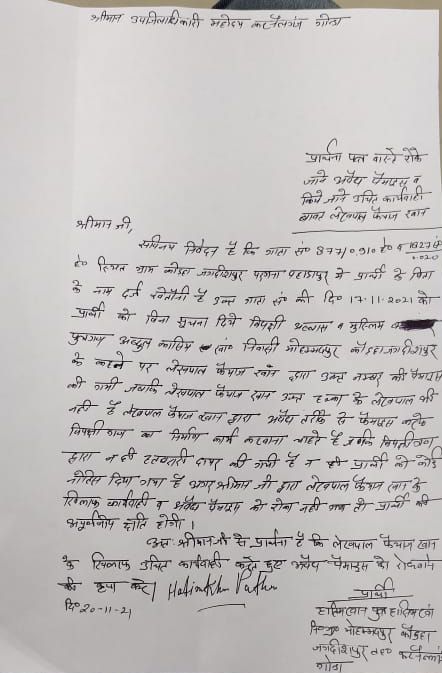 श्रीमान उपजिलाधिकारी महोदय कर्नैलगंज गोण्डा
प्रार्थना पत्र वास्ते रोके
जाने अवैध पैमाइस व
किये जाने उचित कार्यवाही
बावत लेखपाल फैयाज खान
श्रीमान जी,
सविनय निवेदन है कि गाटा सं० 877/0.910 हे० व 1827
हे० स्थित ग्राम कोडहा जगदीशपुर परगना पहाडापुर मे प्रार्थी के पिता
के नाम दर्ज खतौनी है उक्त गाटा सं० की दि० 17-11-2021 को
प्रार्थी को बिना सुचना दिये विपक्षी अब्बास व मुस्लिम
पुत्रगण अब्दुल कासिम निवासी मोहम्मदपुर कोडहा जगदीशपुर
के कहने पर लेखपाल फैयाज खान द्वारा उक्त नम्बर की पैमाइस
की गयी जबकि लेखपाल फैयाज खान उक्त हल्का के लेखपाल भी
नही है लेखपाल फैयाज खान द्वारा अवैध तरीके से पैमाइस करके
विपक्षी गण का निर्माण कार्य करवाना चाहते है जबकि विपक्षीगण
द्वारा न ही दायर की गयी है न ही प्रार्थी को कोई
नोटिस दिया गया है अगर श्रीमान जी द्वारा लेखपाल फैयाज खान के
खिलाफ कार्यवाही व अवैध पैमाइस को रोका नही गया तो प्रार्थी की
अपूर्णनीय क्षति होगी।
अतः श्रीमान जी से प्रार्थना है कि लेखपाल फैयाज खान
के खिलाफ उचित कार्यवाही करते हुए अवैध पैमाइस को रोकवाने
की कृपा करे।
दि० 20-11-21
प्रार्थी
हालिमखान पुत्र हासिम खां
नि० ग्रा० मोहम्मदपुर कोडहा
जगदीशपुर तह० कर्नैलगंज
गोण्डा